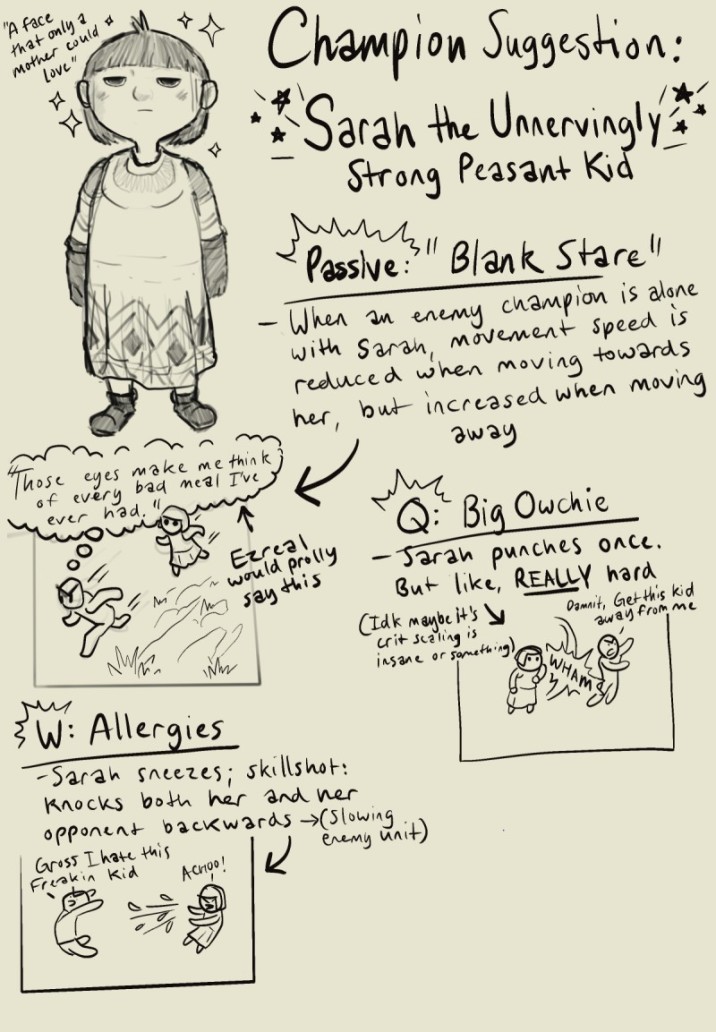 "A face
that only a
mother could
love"
Champion Suggestion:
Sarah the Unnervingly
Strong Peasant Kid
Passive: "Blank Stare"
- When an enemy champion is alone
with Sarah, movement speed is
reduced when moving towards
her, but increased when moving
away
"Those eyes make me think
of every bad meal I've
ever had."
Ezreal
would prolly
say this
Q: Big Owchie
- Sarah punches once.
But like, REALLY hard
(Idk maybe it's
crit scaling is
insane or something)
Damnit, Get this kid
away from me
WHAM
W: Allergies
- Sarah sneezes; skillshot:
Knocks both her and her
opponent backwards → (Slowing
enemy unit)
Gross I hate this
Freakin Kid
ACHOO!